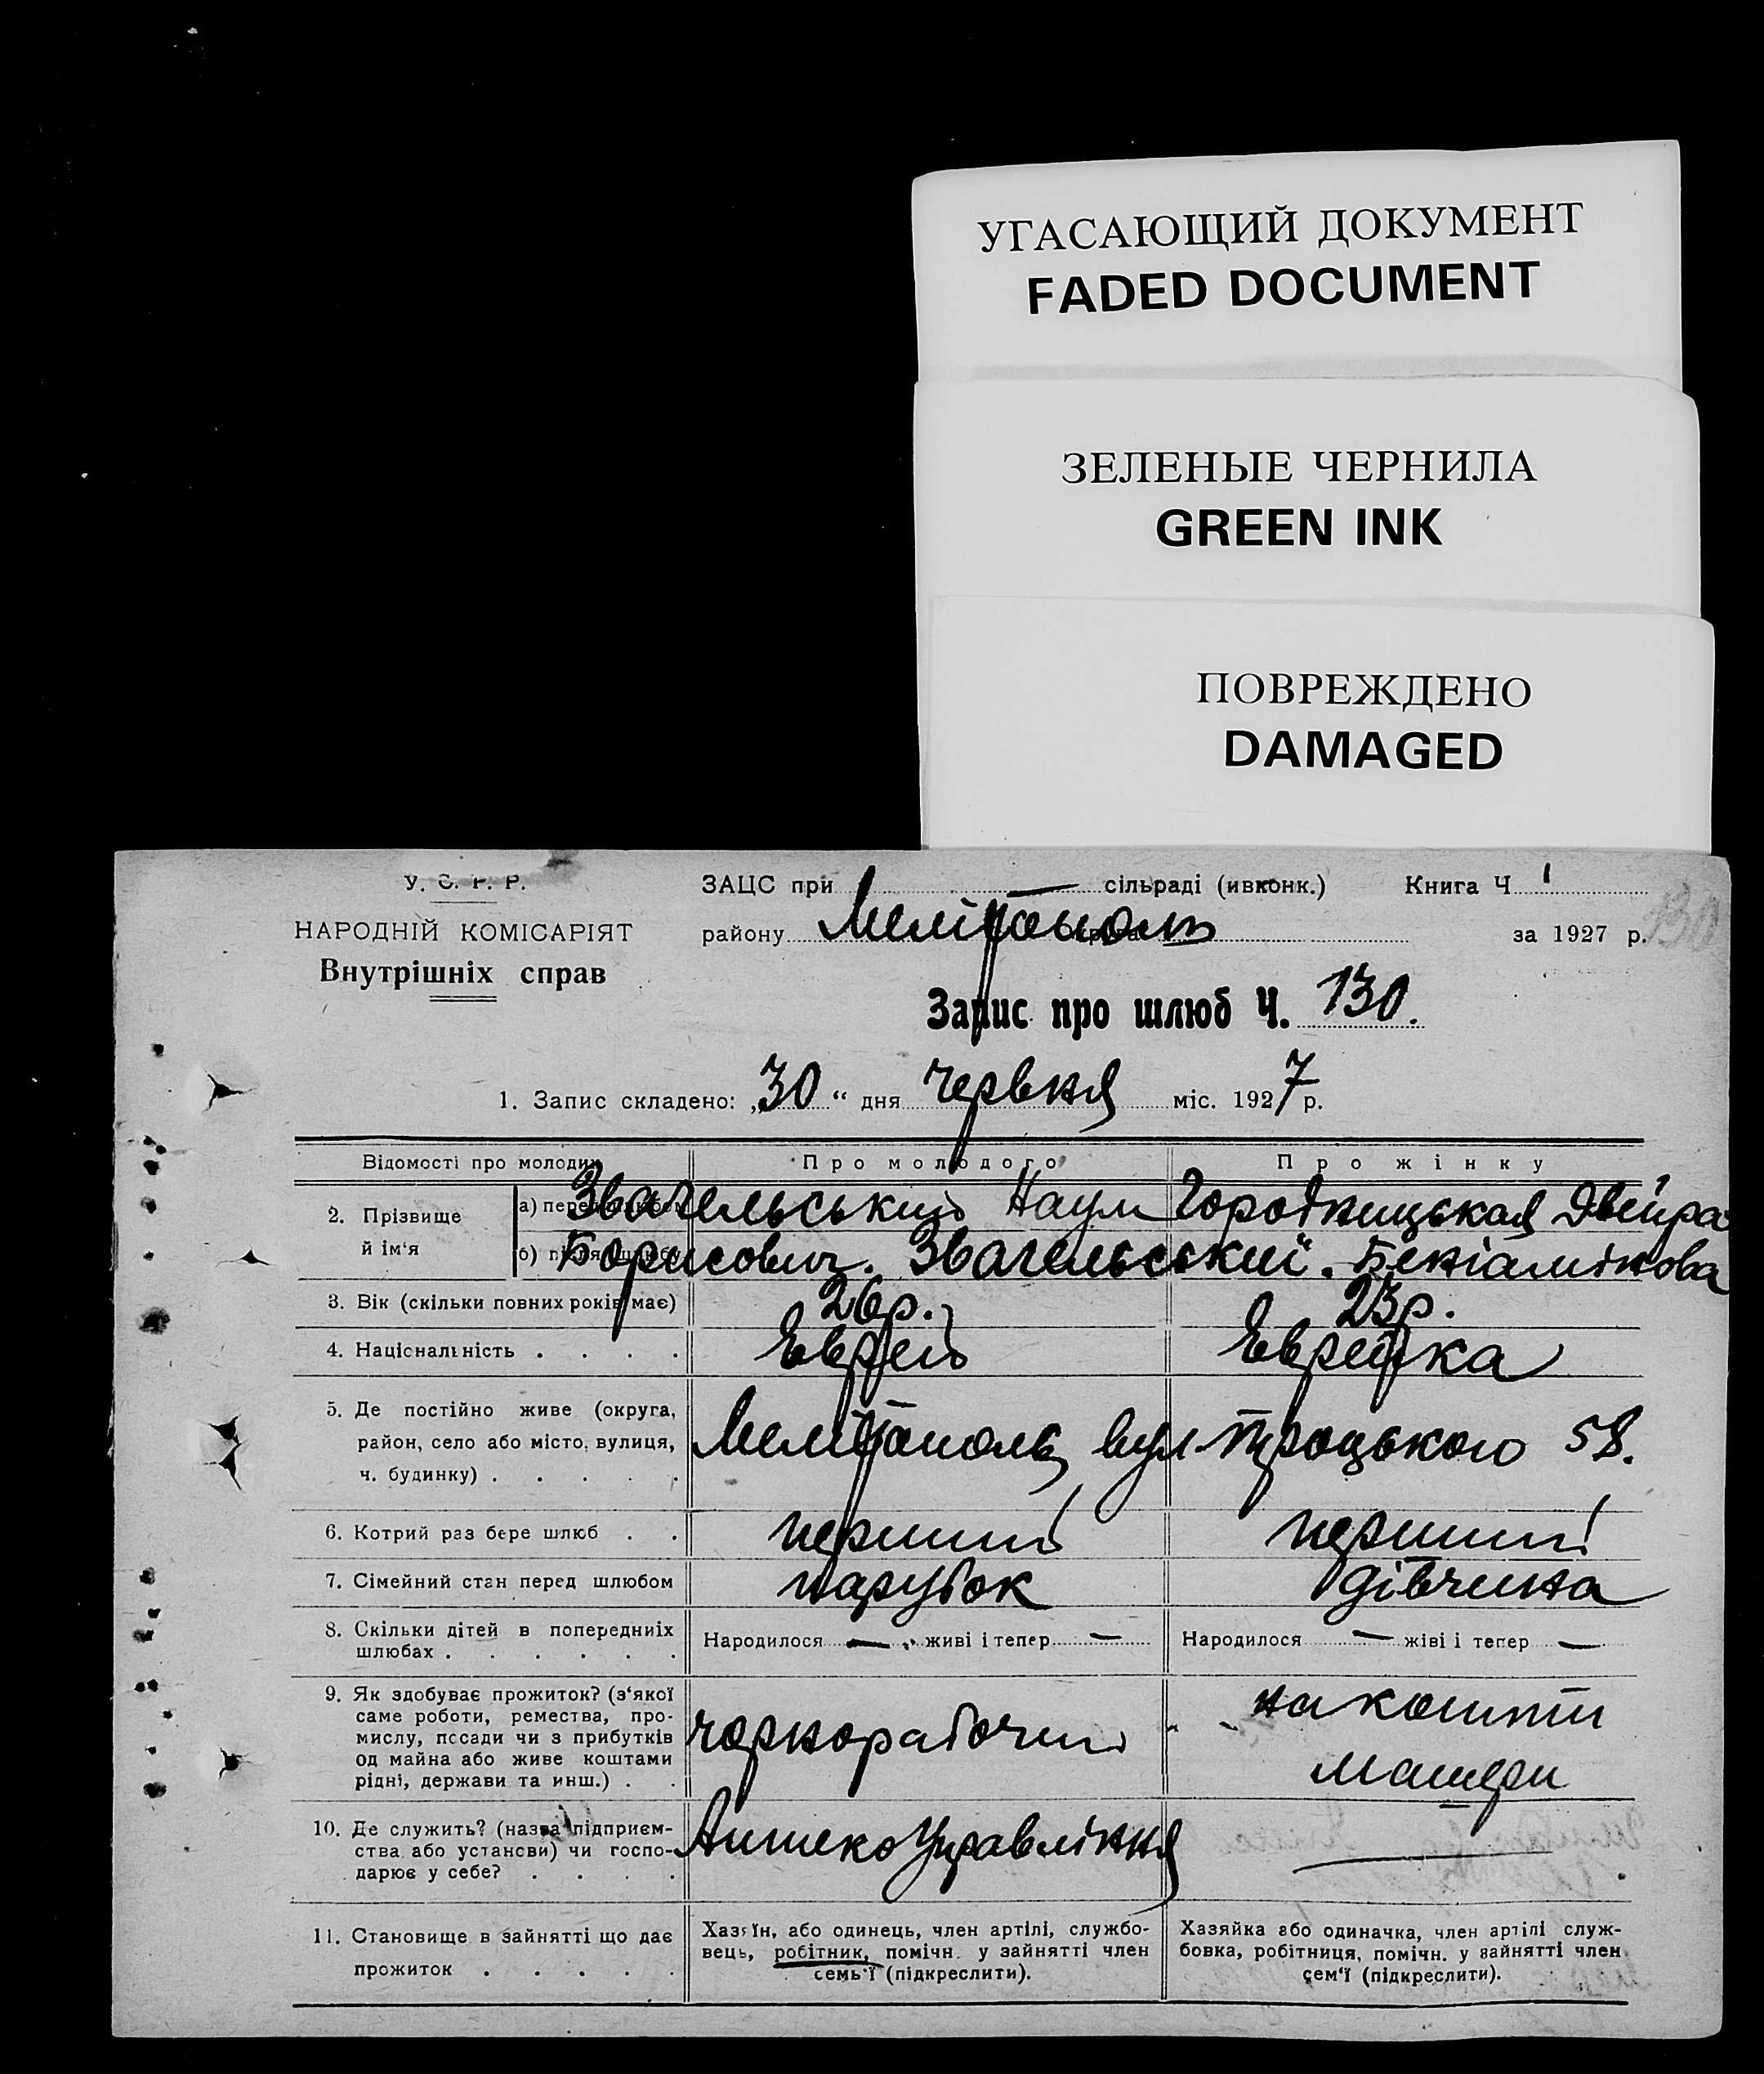 УГАСАЮЩИЙ ДОКУМЕНТ
FADED DOCUMENT
ЗЕЛЕНЫЕ ЧЕРНИЛА
GREEN INK
ПОВРЕЖДЕНО
DAMAGED
У. С. Р. Р.
НАРОДНІЙ КОМІСАРІЯТ
Внутрішніх справ
ЗАЦС при — сільраді (ивконк.) Книга Ч 1
району Мелітополь за 1927 р. 130
Запис про шлюб Ч. 130.
1. Запис складено: „30“ дня червня міс. 1927 р.
Відомості про молодих Про молодого Про жінку
2. Прізвище й ім'я
а) перед шлюбом Звагельський Наум Городницькая Двейра
б) після шлюбу Борисович. Звагельський. Бениамінова
3. Вік (скільки повних років має) 26р. 23р.
4. Національність . . . . Еврей Еврейка
5. Де постійно живе (округа,
район, село або місто, вулиця,
ч. будинку) . . . . .
Мелітополь вул Троцького 58.
6. Котрий раз бере шлюб . . перший перший
7. Сімейний стан перед шлюбом парубок дівчина
8. Скільки дітей в попередниіх
шлюбах . . . . . .
Народилося — живі і тепер — Народилося — жіві і тепер —
9. Як здобуває прожиток? (з'якої
саме роботи, ремества, про-
мислу, посади чи з прибутків
од майна або живе коштами
рідні, держави та инш.) . .
чорнорабочий на кошти
матери
10. Де служить? (назва підприєм-
ства або установи) чи госпо-
дарює у себе? . . . .
Аптекоуправління —
11. Становище в зайнятті що дає
прожиток . . . . .
Хазяїн, або одинець, член артілі, службо-
вець, робітник, помічн. у зайнятті член
семь'ї (підкреслити).
Хазяйка або одиначка, член артілі служ-
бовка, робітниця, помічн. у зайнятті член
сем'ї (підкреслити).